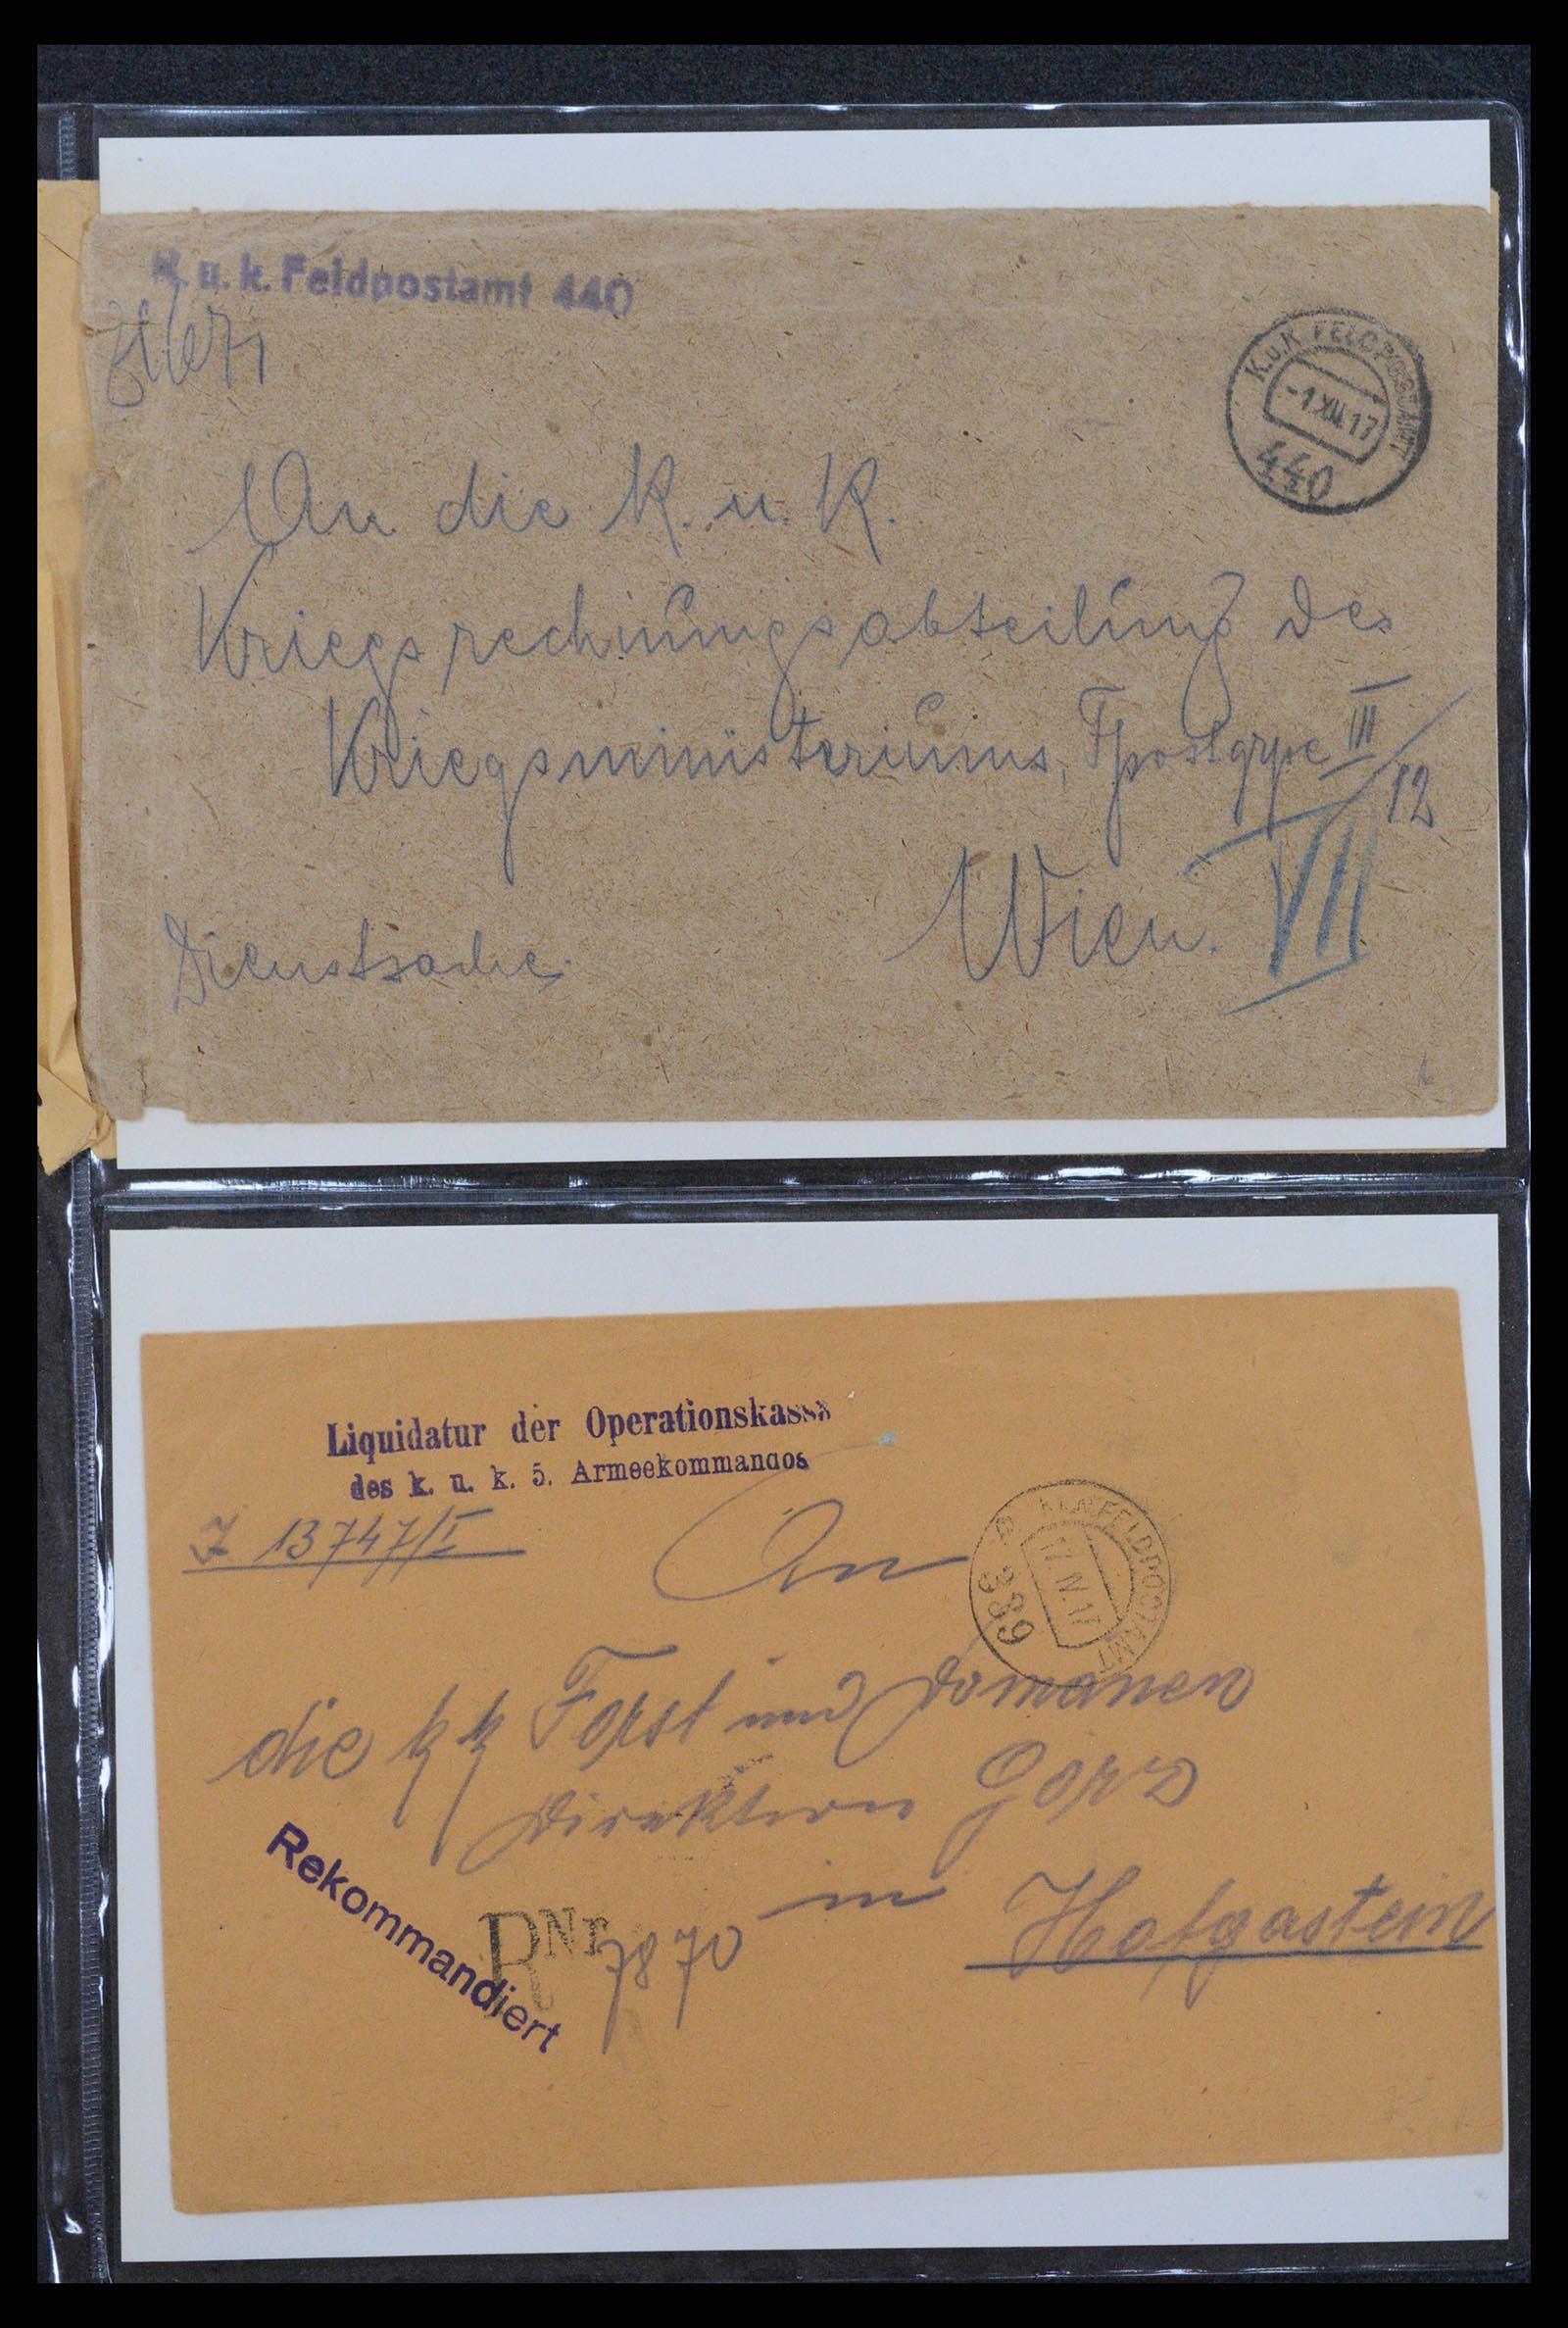 K. u. k. Feldpostamt 440
K.u.K. FELDPOSTAMT
-1.XII.17
440
An die K. u. K.
Kriegsrechnungsabteilung des
Kriegsministeriums, Fpostgrpe III/12
Wien. VII
Dienstsache.
Liquidatur der Operationskassa
des k. u. k. 5. Armeekommandos
Z 13747/I
An
FELDPOSTAMT
17.IV.17
389
die kk Forst und Domänen
Direktion Görz
in Hofgastein
Rekommandiert
R Nr 7870